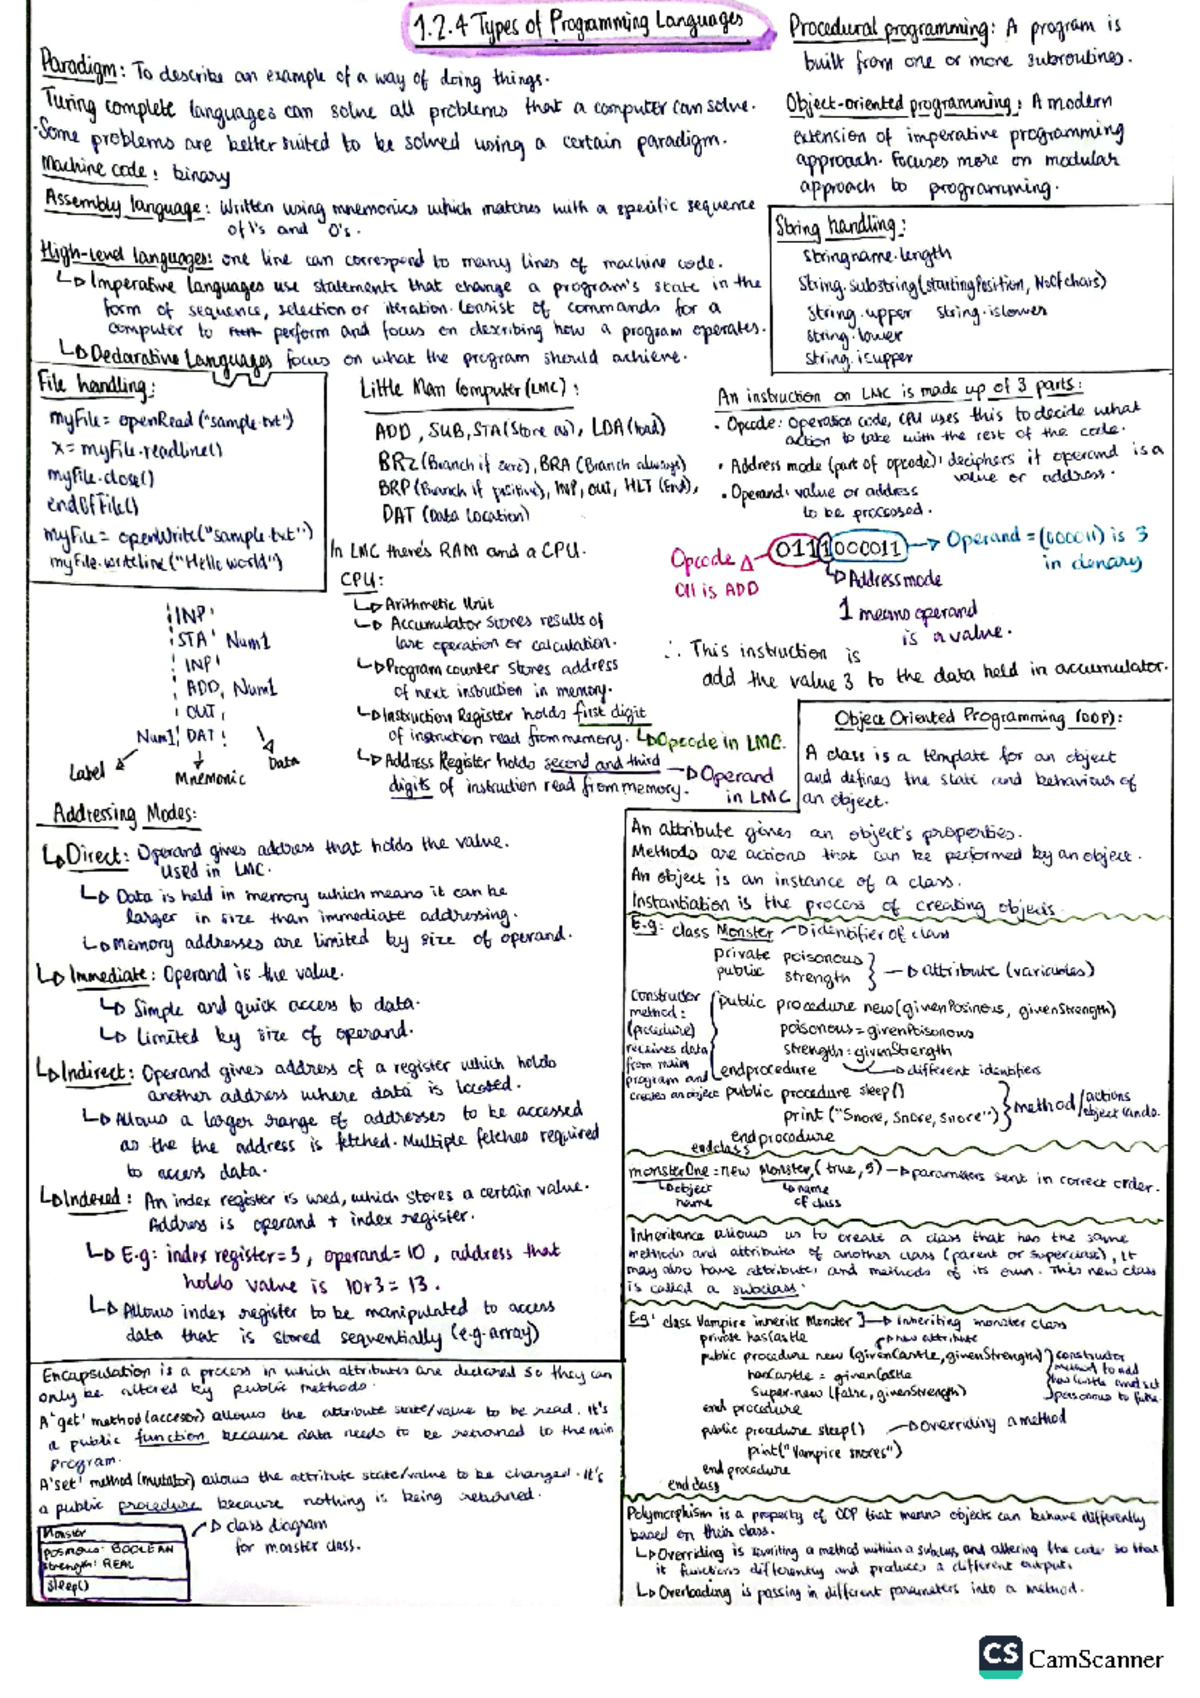 1.2.4 Types of Programming Languages
Paradigm: To describe an example of a way of doing things.
Turing complete languages can solve all problems that a computer can solve.
·Some problems are better suited to be solved using a certain paradigm.
Machine code: binary
Assembly language: Written using mnemonics which matches with a specific sequence
of 1's and 0's.
High-Level languages: one line can correspond to many lines of machine code.
↳ Imperative languages use statements that change a program's state in the
form of sequence, selection or iteration. Consist of commands for a
computer to perform and focus on describing how a program operates.
↳ Declarative Languages focus on what the program should achieve.
Procedural programming: A program is
built from one or more subroutines.
Object-oriented programming: A modern
extension of imperative programming
approach. Focuses more on modular
approach to programming.
String handling:
stringname.length
String.substring(startingPosition, NoOfchars)
string.upper string.islower
string.lower
string.isupper
File handling:
myFile = openRead ("sample.txt")
x = myFile.readline()
myFile.close()
endOfFile()
myFile = openWrite("sample.txt")
myFile.writeline("Hello world")
Little Man Computer (LMC):
ADD, SUB, STA (Store as), LDA (load)
BRZ (Branch if zero), BRA (Branch always)
BRP (Branch if positive), INP, OUT, HLT (End),
DAT (Data location)
An instruction on LMC is made up of 3 parts:
· Opcode: Operation code, CPU uses this to decide what
action to take with the rest of the code.
· Address mode (part of opcode): deciphers if operand is a
value or address.
· Operand: value or address
to be processed.
Opcode
011 is ADD
0111000011
→ Operand = (000011) is 3
in denary
↳ Address mode
1 means operand
is a value.
∴ This instruction is
add the value 3 to the data held in accumulator.
INP
STA Num1
INP
ADD, Num1
OUT
Num1 DAT
Label
Mnemonic
Data
In LMC there's RAM and a CPU.
CPU:
↳ Arithmetic Unit
↳ Accumulator stores results of
last operation or calculation.
↳ Program counter stores address
of next instruction in memory.
↳ Instruction Register holds first digit
of instruction read from memory. ↳ Opcode in LMC.
↳ Address Register holds second and third
digits of instruction read from memory. → Operand
in LMC
Addressing Modes:
↳ Direct: Operand gives address that holds the value.
Used in LMC.
↳ Data is held in memory which means it can be
larger in size than immediate addressing.
↳ Memory addresses are limited by size of operand.
↳ Immediate: Operand is the value.
↳ Simple and quick access to data.
↳ Limited by size of operand.
↳ Indirect: Operand gives address of a register which holds
another address where data is located.
↳ Allows a larger range of addresses to be accessed
as the the address is fetched. Multiple fetches required
to access data.
↳ Indexed: An index register is used, which stores a certain value.
Address is operand + index register.
↳ E.g: index register=3, operand=10, address that
holds value is 10+3=13.
↳ Allows index register to be manipulated to access
data that is stored sequentially (e.g. array)
Encapsulation is a process in which attributes are declared so they can
only be altered by public methods.
A 'get' method (accessor) allows the attribute state/value to be read. It's
a public function because data needs to be returned to the main
program.
A 'set' method (mutator) allows the attribute state/value to be changed. It's
a public procedure because nothing is being returned.
Monster
posnous: BOOLEAN
strength: REAL
sleep()
→ class diagram
for monster class.
Object Oriented Programming (OOP):
A class is a template for an object
and defines the state and behaviour of
an object.
An attribute gives an object's properties.
Methods are actions that can be performed by an object.
An object is an instance of a class.
Instantiation is the process of creating objects.
E.g: class Monster → identifier of class
private poisonous
public strength
→ attribute (variables)
constructor
method:
(procedure)
receives data
from main
program and
creates an object
public procedure new(givenPosinous, givenStrength)
poisonous = givenPoisonous
strength = givenStrength
endprocedure → different identifiers
public procedure sleep()
print ("Snore, Snore, Snore")
end procedure
endclass
method/actions
object can do.
monsterOne = new Monster, (true, 5) → parameters sent in correct order.
↳ object
name
↳ name
of class
Inheritance allows us to create a class that has the same
methods and attributes of another class (parent or superclass), it
may also have attributes and methods of its own. This new class
is called a subclass.
E.g: class Vampire inherits Monster → inheriting monster class
private hasCastle → new attribute
public procedure new (givenCastle, givenStrength)
hasCastle = givenCastle
Super.new (false, givenStrength)
end procedure
constructor
method to add
hasCastle and set
poisonous to false.
public procedure sleep() → Overriding a method
print("Vampire snores")
end procedure
end class
Polymorphism is a property of OOP that means objects can behave differently
based on their class.
↳ Overriding is rewriting a method within a subclass and altering the code so that
it functions differently and produces a different output.
↳ Overloading is passing in different parameters into a method.
CS CamScanner